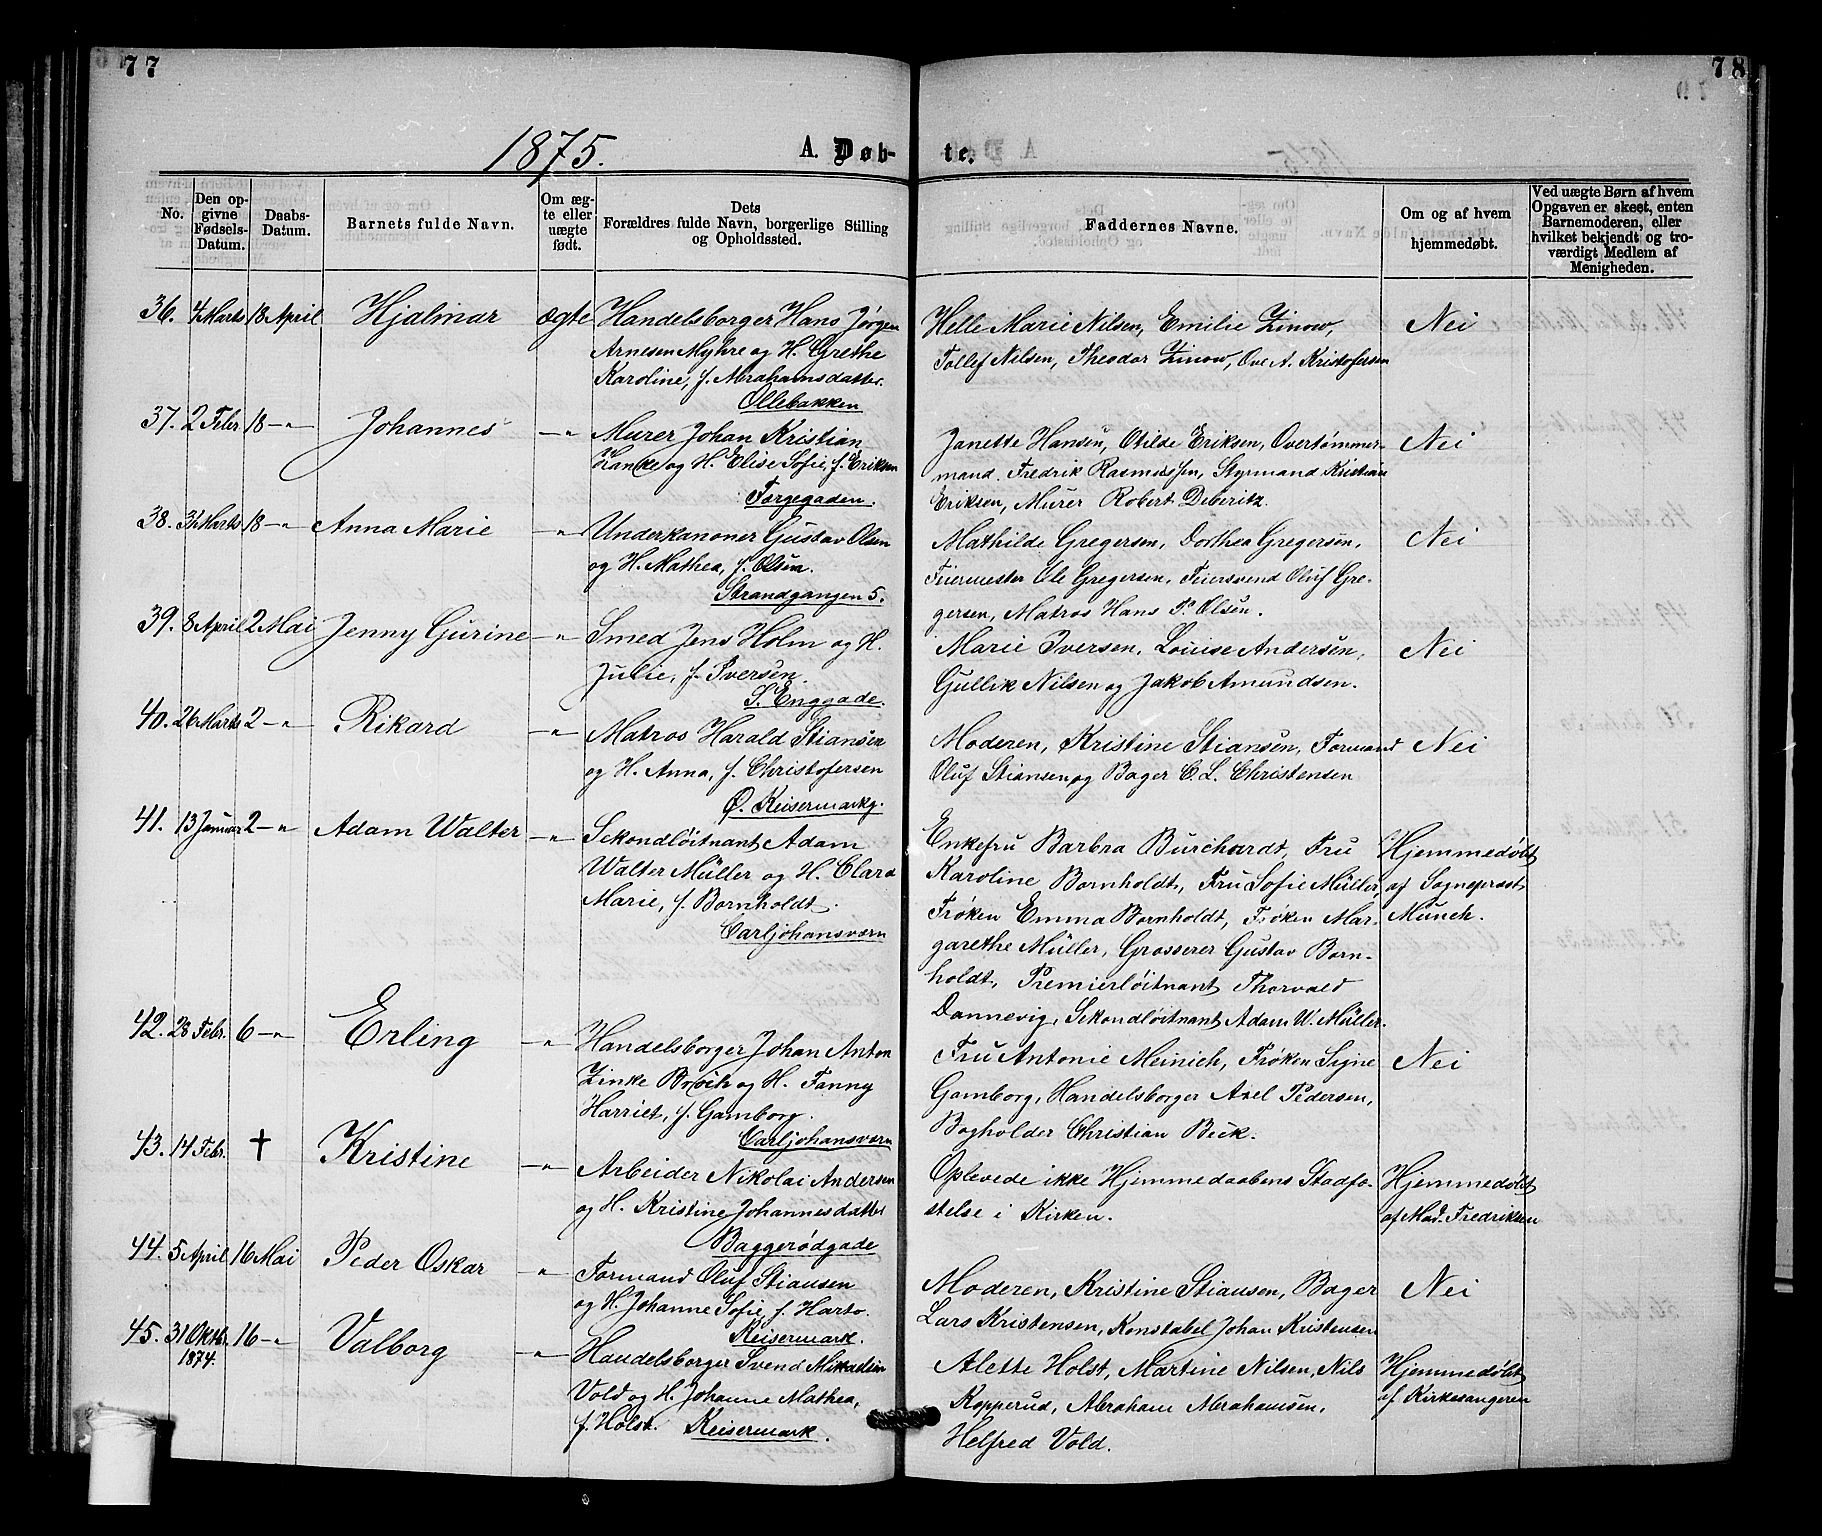 77
78
1875.
A. Døb-
te.
No.
Den op-
givne
Fødsels-
Datum.
Daabs-
Datum.
Barnets fulde Navn.
Om æg-
te eller
uægte
født.
Dets
Forældres fulde Navn, borgerlige Stilling
og Opholdssted.
Faddernes Navne.
Om og af hvem
hjemmedøbt.
Ved uægte Børn af hvem
Opgaven er skeet, enten
Barnemoderen, eller
hvilket bekjendt og tro-
værdigt Medlem af
Menigheden.
36. 4 Marts 18 April Hjalmar ægte Handelsborger Hans Jørgen
Arnesen Myhre og H. Grethe
Karoline, f. Abrahamsdatter.
Ollebakken
Helle Marie Nilsen, Emilie Zinow,
Tollef Nilsen, Theodor Zinow, Ove A. Kristofersen
Nei
37. 2 Febr 18 -"- Johannes -"- Murer Johan Kristian
Zanke og H. Elise Sofie, f. Eriksen
Torgegaden.
Janette Hansen, Otilde Eriksen, Overtømmer-
mand. Fredrik Rasmussen, Styrmand Kristian
Eriksen, Murer Robert Deberitz.
Nei
38. Marts 18 -"- Anna Marie -"- Underkanoner Gustav Olsen
og H. Mathea, f. Olsen.
Strandgangen 5.
Mathilde Gregersen, Dorthea Gregersen,
Feiermester Ole Gregersen, Feiersvend Oluf Gre-
gersen, Matros Hans P. Olsen.
Nei
39. 8 April 2 Mai Jenny Gurine -"- Smed Jens Holm og H.
Julie, f. Iversen.
S. Enggade.
Marie Iversen, Louise Andersen,
Gullik Nilsen og Jakob Amundsen.
Nei
40. 26 Marts 2 -"- Rikard -"- Matros Harald Stiansen
og H. Anna, f. Christofersen
Ø. Keisermarkg.
Moderen, Kristine Stiansen, Formand
Oluf Stiansen og Bager C. L. Christensen
Nei
41. 13 Januar 2 -"- Adam Walter -"- Sekondløitnant Adam
Walter Müller og H. Clara
Marie, f. Bornholdt.
Carljohansværn
Enkefru Barbra Burchardt, Fru
Karoline Bornholdt, Fru Sofie Müller,
Frøken Emma Bornholdt, Frøken Mar-
garethe Müller, Grosserer Gustav Born-
holdt, Premierløitnant Thorvald
Dannevig, Sekondløitnant Adam W. Müller.
Hjemmedøbt
af Sogneprest
Munch.
42. 28 Febr. 6 -"- Erling -"- Handelsborger Johan Anton
Zinke og H. Fanny
Harriet, f. Gamborg.
Carljohansværn
Fru Antonie Meinich, Frøken Signe
Gamborg, Handelsborger Axel Pedersen,
Bogholder Christian Beck.
Nei
43. 14 Febr. † Kristine -"- Arbeider Nikolai Andersen
og H. Kristine Johannesdatter
Baggerødgade
Oplevede ikke Hjemmedaabens Stadfæ-
stelse i Kirken.
Hjemmedøbt
af Mad. Fredriksen
44. 5 April 16 Mai Peder Oskar -"- Formand Oluf Stiansen
og H. Johanne Sofie, f. Harto.
Keisermark.
Moderen, Kristine Stiansen, Bager
Lars Kristensen, Konstabel Johan Kristensen
Nei
45. 31 Oktbr. 16 -"- Valborg -"- Handelsborger Svend Mikaelsen
1874.
Vold og H. Johanne Mathea,
f. Holst. Keisermark.
Alette Holst, Martine Nilsen, Nils
Kopperud, Abraham Abrahamsen,
Helfred Vold.
Hjemmedøbt
af Kirkesangeren